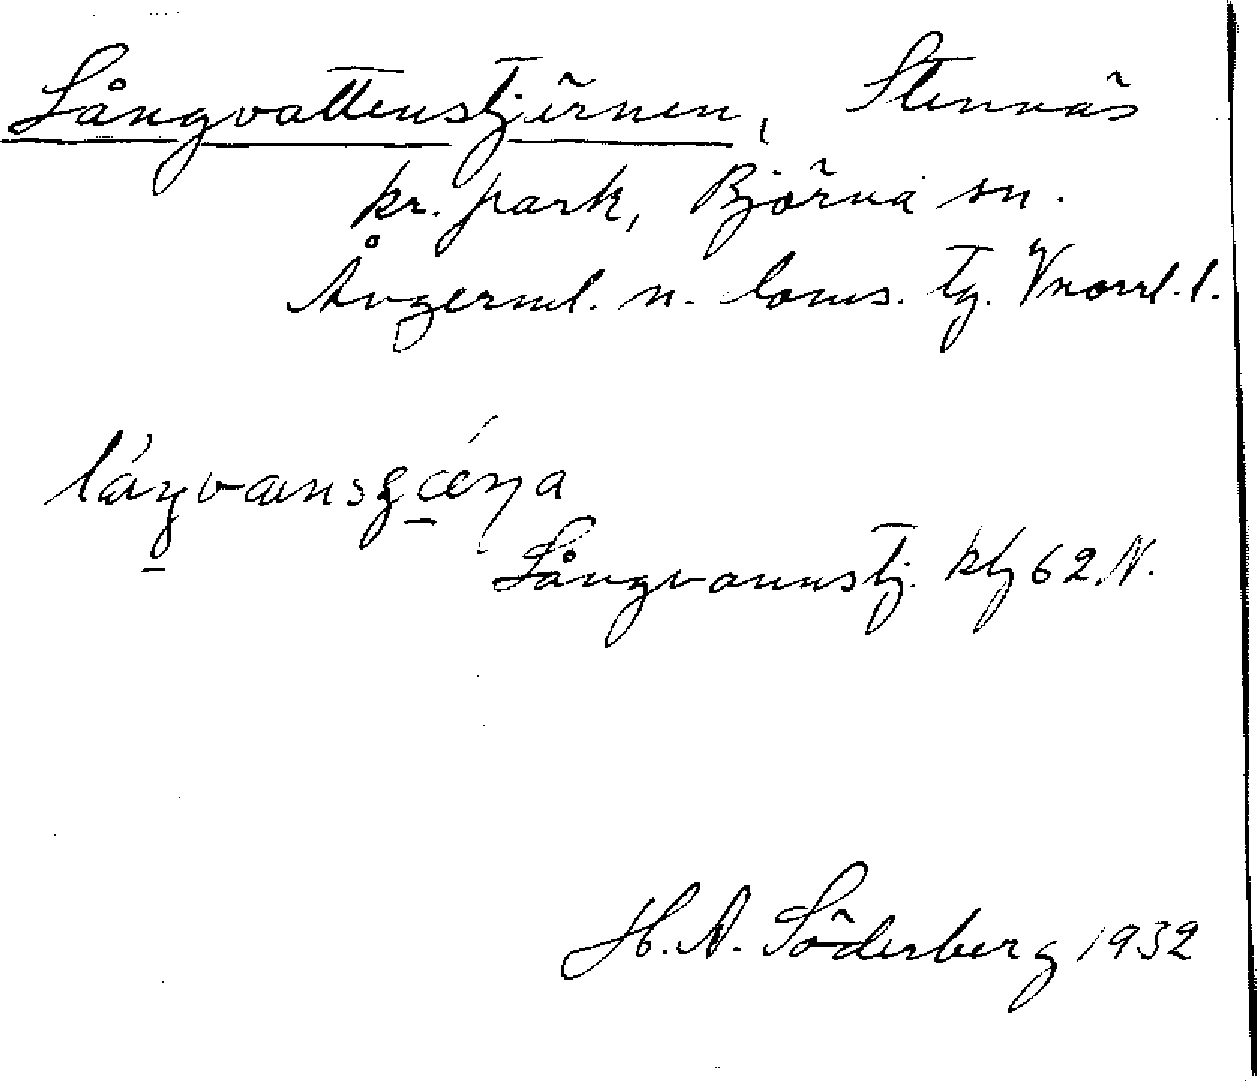 Långvattenstjärnen, Stennäs
kr. park, Björna sn.
Ångerml. n. doms. tg. Vnorrl. l.
Långvannstj. ktj 62 N.
H. A. Söderberg 1932